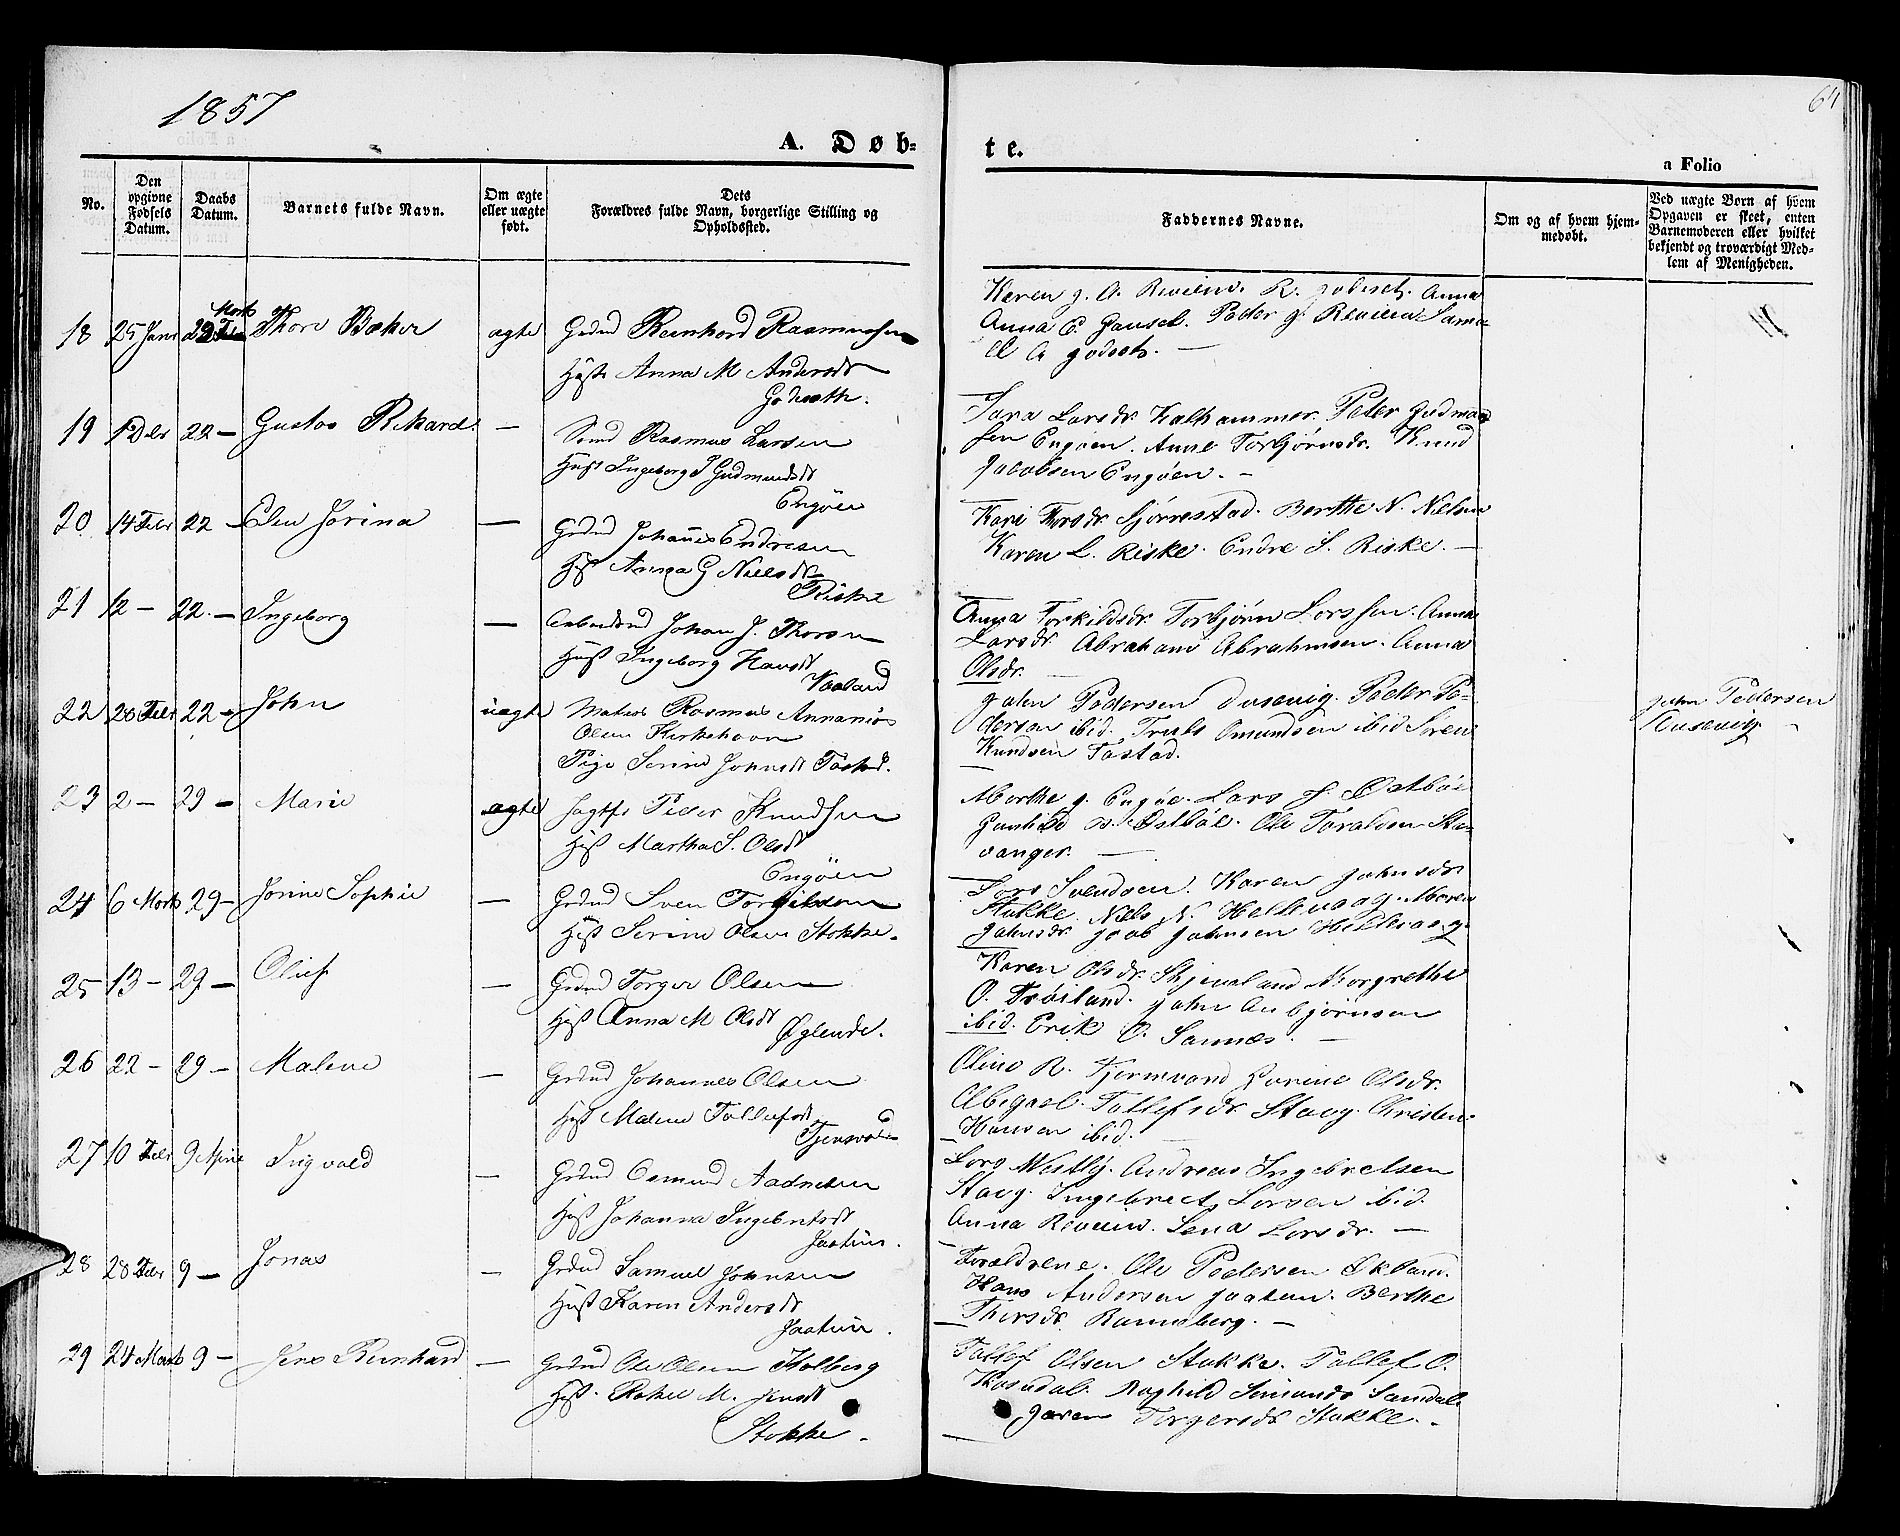 1857
64
A. Døb-
te.
a Folio
No.
Den opgivne Fødsels Datum.
Daabs Datum.
Barnets fulde Navn.
Om ægte eller uægte født.
Dets Forældres fulde Navn, borgerlige Stilling og Opholdssted.
Faddernes Navne.
Om og af hvem hjemmedøbt.
Ved uægte Børn af hvem Opgaven er skeet, enten Barnemoderen eller hvilket bekjendt og troværdigt Medlem af Menigheden.
18 25 Janr 22 Thore Baker ægte Grdmd Reinhord Rasmussen
Hust Anna M Andersdt
Godeseth.
Karen J. A. Revheim. R. Anna
Anna C. Gausel. Peder G. Revheim Samu-
el A Godseth. —
19 1 Febr 22 — Gustav Rikard. — Smd Rasmus Larsen
Hust Ingeborg T Gudmundsdt
Engöen
Sara Larsdr. Kalhammer. Peter Gudmund
sen Engöen. Anne Torbjörnsdr. Knud
Jacobsen Engöen. —
20 14 Febr 22 — Elen Jorina — Grdmd Johannes Endresen
Hst Anna G. Nielsdt—
Riske
Kari Thorsdr. Sjörrestad. Berthe N. Nielsen
Karen L. Riske. Endre S. Riske. —
21 12 — 22. — Ingeborg — Arbeidsmd Johan J. Thorsen
Hust Ingeborg Hansdt
Vaaland
Anna Torkildsdr. Torbjörn Larssen. Anna
Larsdr. Abraham Abrahamsen. Anna
Olsdr. —
22 28 Febr 22 — John uægte Matros Rasmus Annanias
Olsen Kirkehavn
Pige Serine Johnsdt Tasted.
John Pedersen Dusevig. Peder Pe-
dersen ibid. Truls Omundsen ibid Sören
Knudsen Tastad.
John Pedersen
Dusevig —
23 2 — 29 — Marie ægte Jagtfs Peder Knudsen
Hst Martha S. Olsdt
Engöen
Marthe G. Engöe. Lars J Östböe
Gunhild O. Östböe. Ole Toralsen Sta-
vanger. —
24 6 Marts 29 — Jorine Sophie — Grdmd Sven Torgilssen
Hst Serine Olsen Stokke.
Lars Svendsen. Karen Johnsdr
Stokke. Niels N. Hellevaag. Maren
Johnsdr. Joab Johnsen Hellevaag.
25 13 — 29 — Olief — Grdmd Torger Olsen
Hst Anna M Olsdt
Øglende.
Karen Olsdr. Skjeveland Margrethe
O. Tröiland. John Asbjörnsen
ibid. Erik O. Sannes. —
26 22 — 29 — Malene — Grdmd Johannes Olsen
Hst Malene Tollefsdt
Tjensvold
Oline R. Tjensvond Lorine Olsdr.
Abigael Tollefsdr. Stavg. Christen
Hansen ibid. —
27 10 Febr 9 April Ingvald — Grdmd Osmund Aadnesen
Hust Johanna Ingebrtsdt
Jaatun.
Lars Westly. Andreas Ingebretsen
Stavg. Ingebrect Larsen ibid.
Anna Revheim. Lena Larsdr. —
28 28 Febr 9 — Jonas — Grdmd Samuel Johnsen
Hust Karen Andersdt
Jaatun.
Forældrene. Ole Pedersen Økland.
Hans Andersen Jaatun. Berthe
Thorsdr. Ramsberg. —
29 24 Marts 9 — Jens Reinhard — Grdmd Ole Olsen Holberg
Hst. Rakel M. Jensdt
Stokke.
Tollef Olsen Stokke. Tollef O.
Raghild Simonds Samdal
Joren Torgersdr Stokke. —